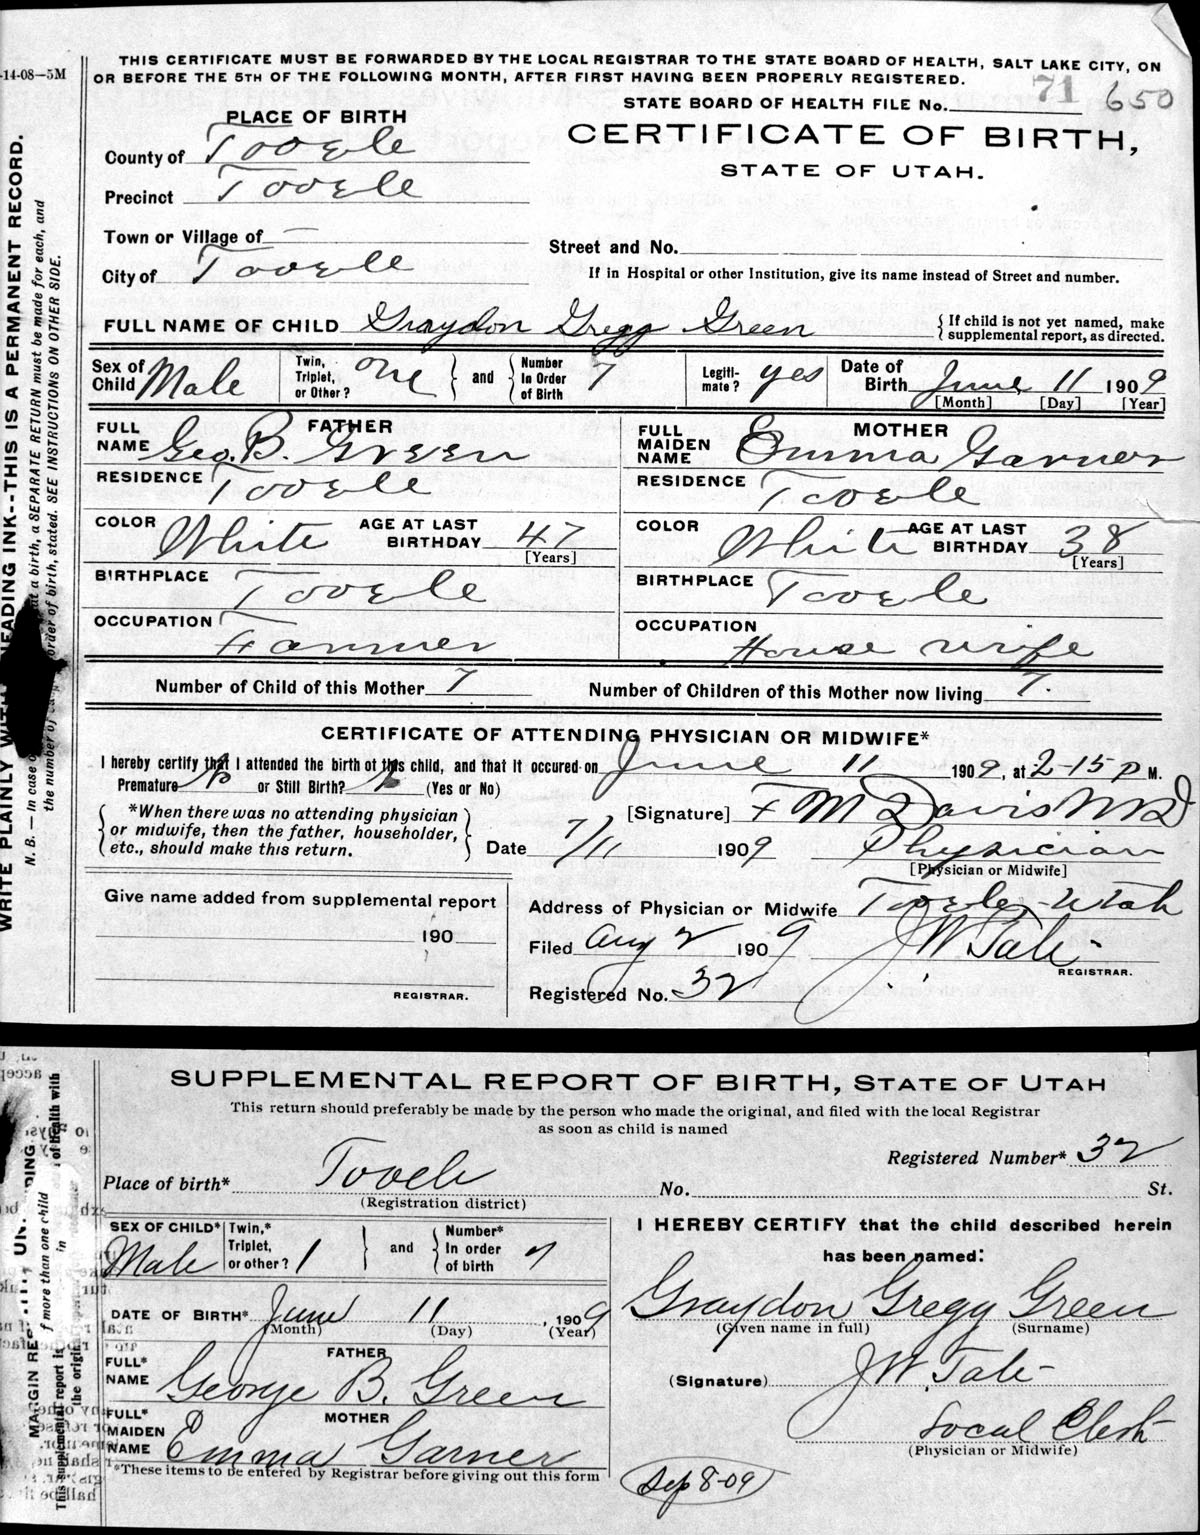 -14-08—5M
THIS CERTIFICATE MUST BE FORWARDED BY THE LOCAL REGISTRAR TO THE STATE BOARD OF HEALTH, SALT LAKE CITY, ON
OR BEFORE THE 5TH OF THE FOLLOWING MONTH, AFTER FIRST HAVING BEEN PROPERLY REGISTERED.
STATE BOARD OF HEALTH FILE No. 71 650
PLACE OF BIRTH
CERTIFICATE OF BIRTH,
STATE OF UTAH.
County of Tooele
Precinct Tooele
Town or Village of —
Street and No.
City of Tooele
If in Hospital or other Institution, give its name instead of Street and number.
FULL NAME OF CHILD Graydon Gregg Green
{ If child is not yet named, make
{ supplemental report, as directed.
Sex of Child Male Twin, Triplet, or Other? one } and { Number In Order of Birth 7 Legiti-mate? yes Date of Birth June 11 1909
[Month] [Day] [Year]
FATHER
FULL NAME Geo. B. Green
MOTHER
FULL MAIDEN NAME Emma Garner
RESIDENCE Tooele
RESIDENCE Tooele
COLOR White AGE AT LAST BIRTHDAY 47 [Years]
COLOR White AGE AT LAST BIRTHDAY 38 [Years]
BIRTHPLACE Tooele
BIRTHPLACE Tooele
OCCUPATION Farmer
OCCUPATION House wife
Number of Child of this Mother 7 Number of Children of this Mother now living 7.
CERTIFICATE OF ATTENDING PHYSICIAN OR MIDWIFE*
I hereby certify that I attended the birth of this child, and that it occured on June 11 1909, at 2-15 P M.
Premature No or Still Birth? No (Yes or No)
*When there was no attending physician
or midwife, then the father, householder,
etc., should make this return.
[Signature] F M Davis M D
Date 7/11 1909 Physician
[Physician or Midwife]
Give name added from supplemental report
190
REGISTRAR.
Address of Physician or Midwife Tooele Utah
Filed Aug 2 1909 J W Tate
REGISTRAR.
Registered No. 32
WRITE PLAINLY WITH EADING INK--THIS IS A PERMANENT RECORD.
N. B.—In case of at a birth, a SEPARATE RETURN must be made for each, and
the number of order of birth, stated. SEE INSTRUCTIONS ON OTHER SIDE.
SUPPLEMENTAL REPORT OF BIRTH, STATE OF UTAH
This return should preferably be made by the person who made the original, and filed with the local Registrar
as soon as child is named
Registered Number* 32
Place of birth* Tooele No. St.
(Registration district)
SEX OF CHILD* Male Twin,* Triplet, or other? 1 } and { Number* In order of birth 7
DATE OF BIRTH* June 11, 1909
(Month) (Day) (Year)
FATHER
FULL* NAME George B. Green
MOTHER
FULL* MAIDEN NAME Emma Garner
*These items to be entered by Registrar before giving out this form
I HEREBY CERTIFY that the child described herein
has been named:
Graydon Gregg Green
(Given name in full) (Surname)
(Signature) J W. Tate
Local Clerk
(Physician or Midwife)
Sep 8-09
MARGIN RES DING
This supplemental report is in
f more than one child
the origin
of health with